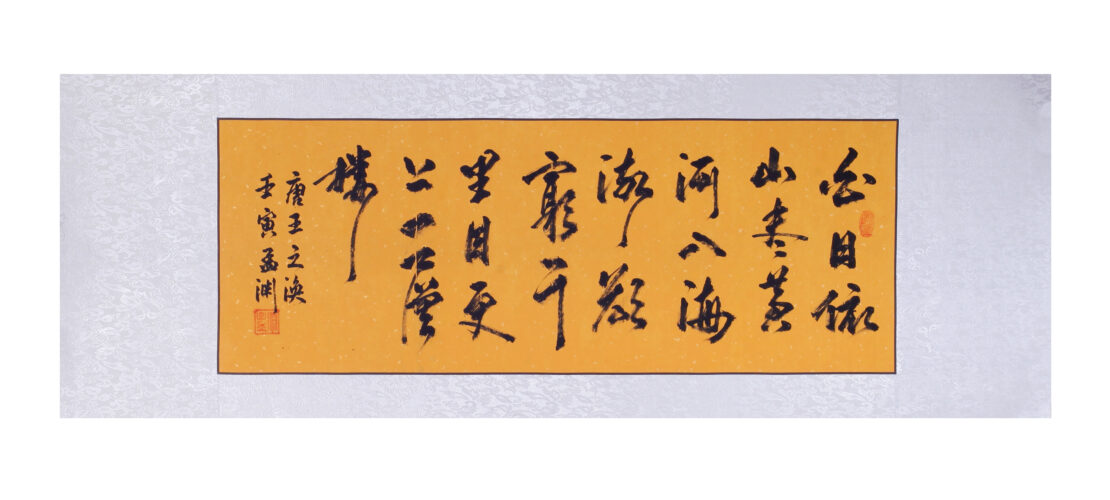 白日依
山尽黄
河入海
流欲
窮千
里目更
上一層
楼
唐王之渙
壬寅